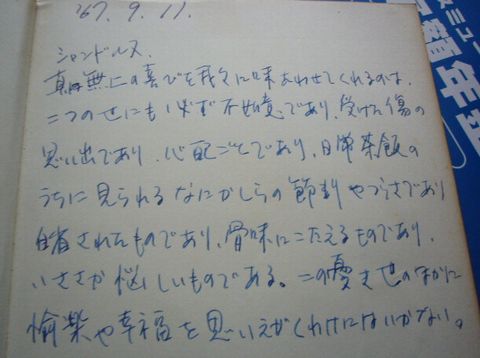 '67. 9. 11.
シャンドルス.
真に無上の喜びを我々に味あわせてくれるのは、
この世にも必ず不如意であり、受けた傷の
思い出であり、心配ごとであり、日常茶飯の
うちに見られるなにかしらの節制やつらさであり
自省されたものであり、骨味にこたえるものであり、
いささか悩しいものである。この憂き世のほかに
愉楽や幸福を思いえがくわけにはいかない。
スミュー
顔年